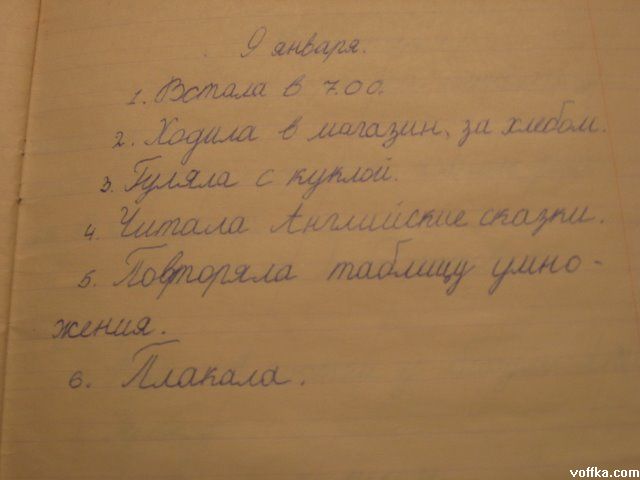 9 января.
1. Встала в 7.00.
2. Ходила в магазин, за хлебом.
3. Гуляла с куклой.
4. Читала Английские сказки.
5. Повторяла таблицу умно-
жения.
6. Плакала.
voffka.com